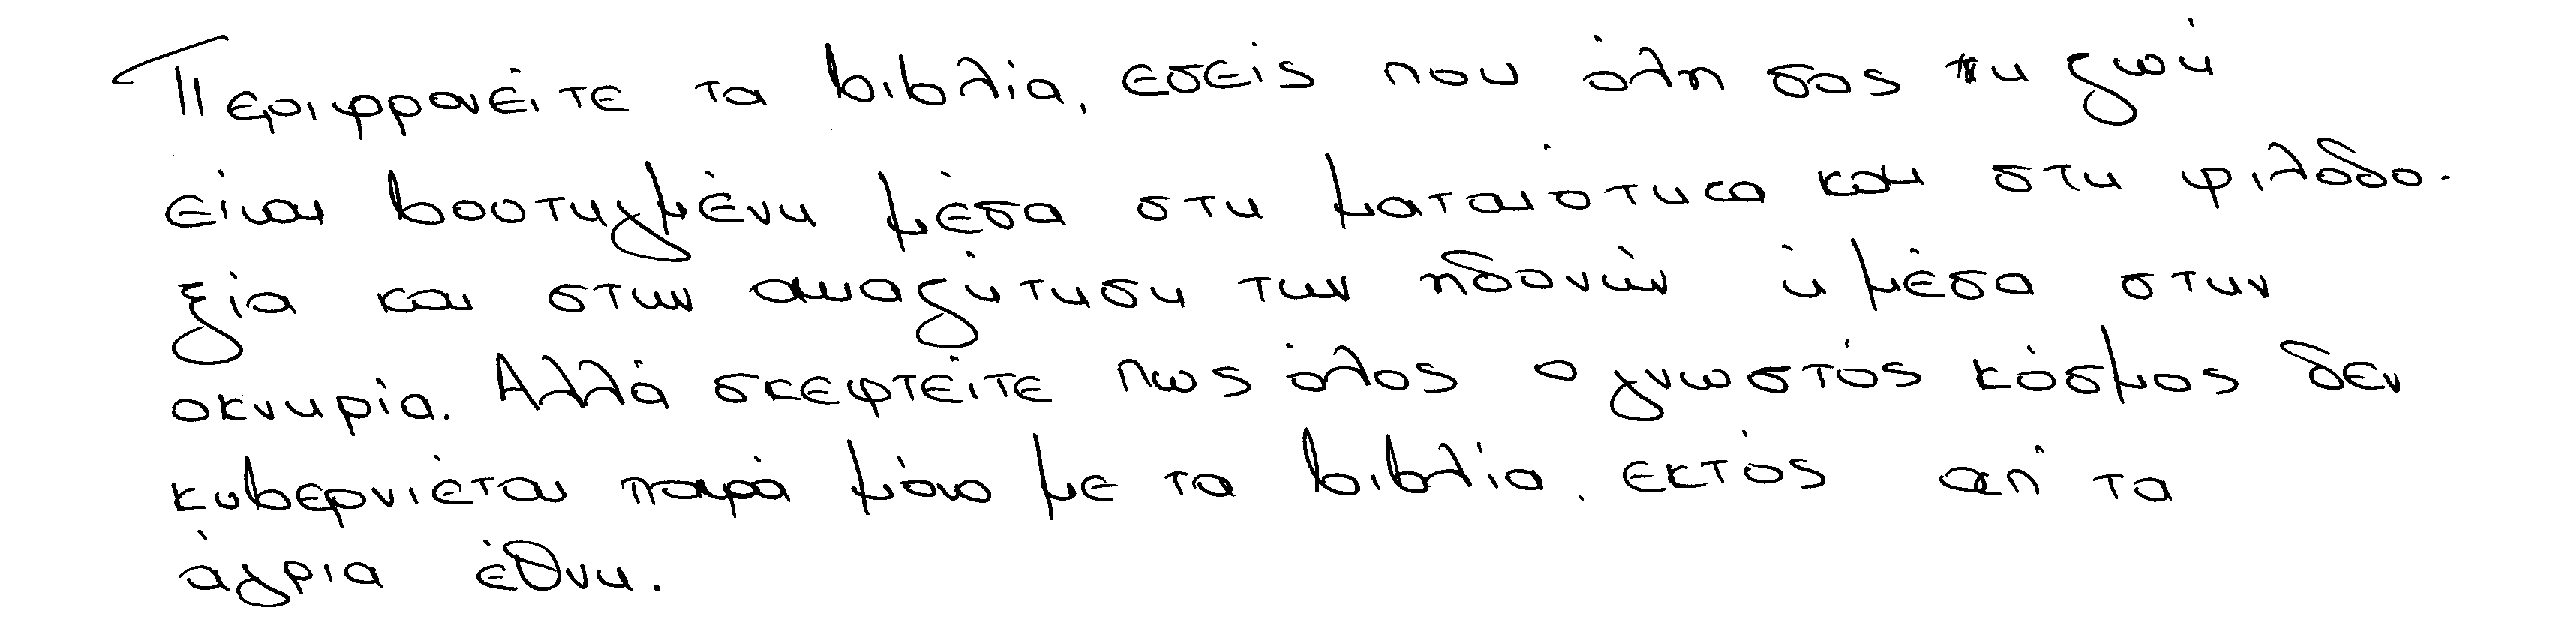 Περιφρονείτε τα βιβλία, εσείς που όλη σας τη ζωή
είναι βουτηγμένη μέσα στη ματαιότητα και στη φιλοδο-
ξία και στην αναζήτηση των ηδονών ή μέσα στην
οκνηρία. Αλλά σκεφτείτε πως όλος ο γνωστός κόσμος δεν
κυβερνιέται παρά μόνο με τα βιβλία, εκτός απ' τα
άγρια έθνη.